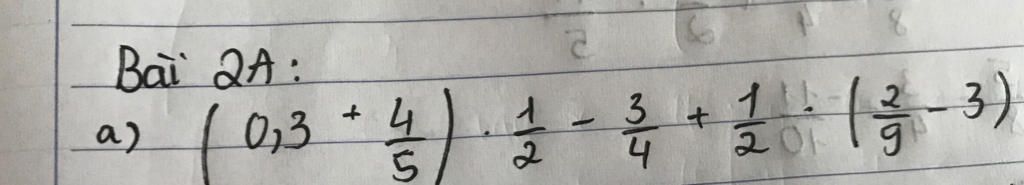 Bài 2A:
a) (0,3 + 4/5) . 1/2 - 3/4 + 1/2 : (2/9 - 3)